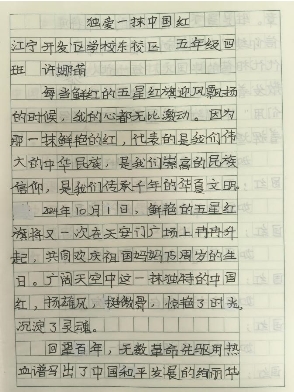 独爱一抹中国红
江宁开发区学校东校区 五年级四
班 许娜茹
每当鲜红的五星红旗迎风飘扬
的时候，我的心都无比激动。因为
那一抹鲜艳的红，代表的是我们伟
大的中华民族，是我们崇高的民族
信仰，是我们传承千年的华夏文明。
2024年10月1日，鲜艳的五星红
旗将又一次在天安门广场上冉冉升
起，共同欢庆祖国妈妈75周岁的生
日。广阔天空中这一抹独特的中国
红，扬雄风，挺傲骨，惊艳了时光，
沉淀了灵魂。
回望百年，无数革命先驱用热
血谱写出了中国和平发展的绚丽华